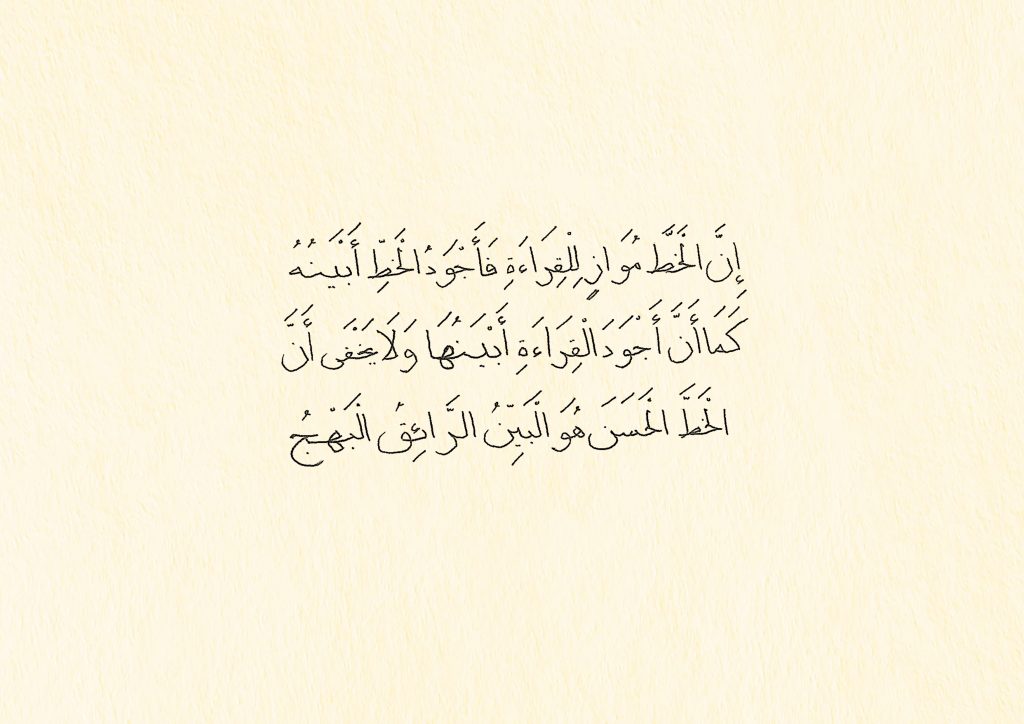 إِنَّ الْخَطَّ مُوَازٍ لِلْقِرَاءَةِ فَأَجْوَدُ الْخَطِّ أَبْيَنُهُ
كَمَا أَنَّ أَجْوَدَ الْقِرَاءَةِ أَبْيَنُهَا وَلَا يَخْفَى أَنَّ
الْخَطَّ الْحَسَنَ هُوَ الْبَيِّنُ الرَّائِقُ الْبَهْجُ